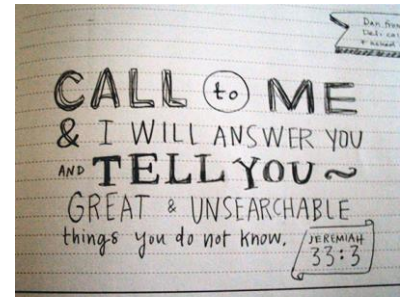 Dan from
CALL to ME
& I WILL ANSWER YOU
AND TELL YOU ~
GREAT & UNSEARCHABLE
things you do not know.
JEREMIAH
33:3